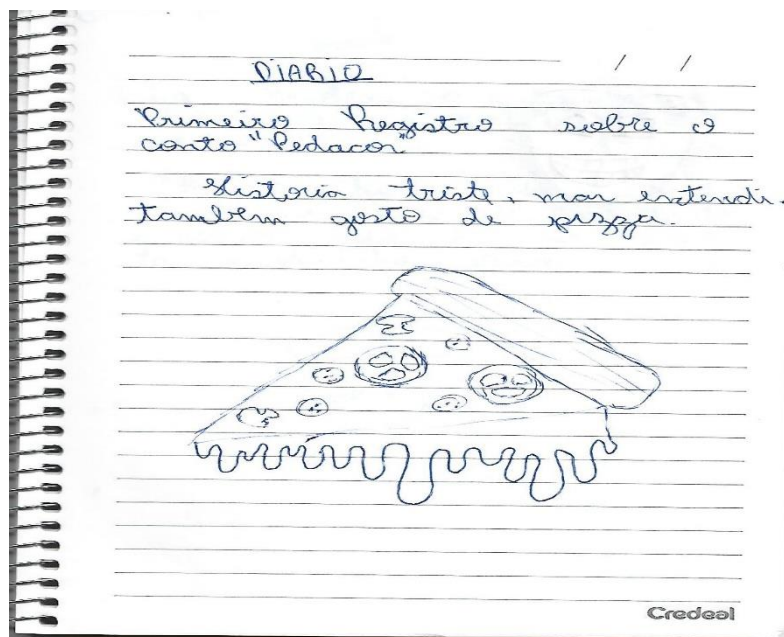 DIARIO / /
Primeiro Registro sobre o
conto "Pedaços"
Historia triste, mas entendi.
também gosto de pizza.
Credeal